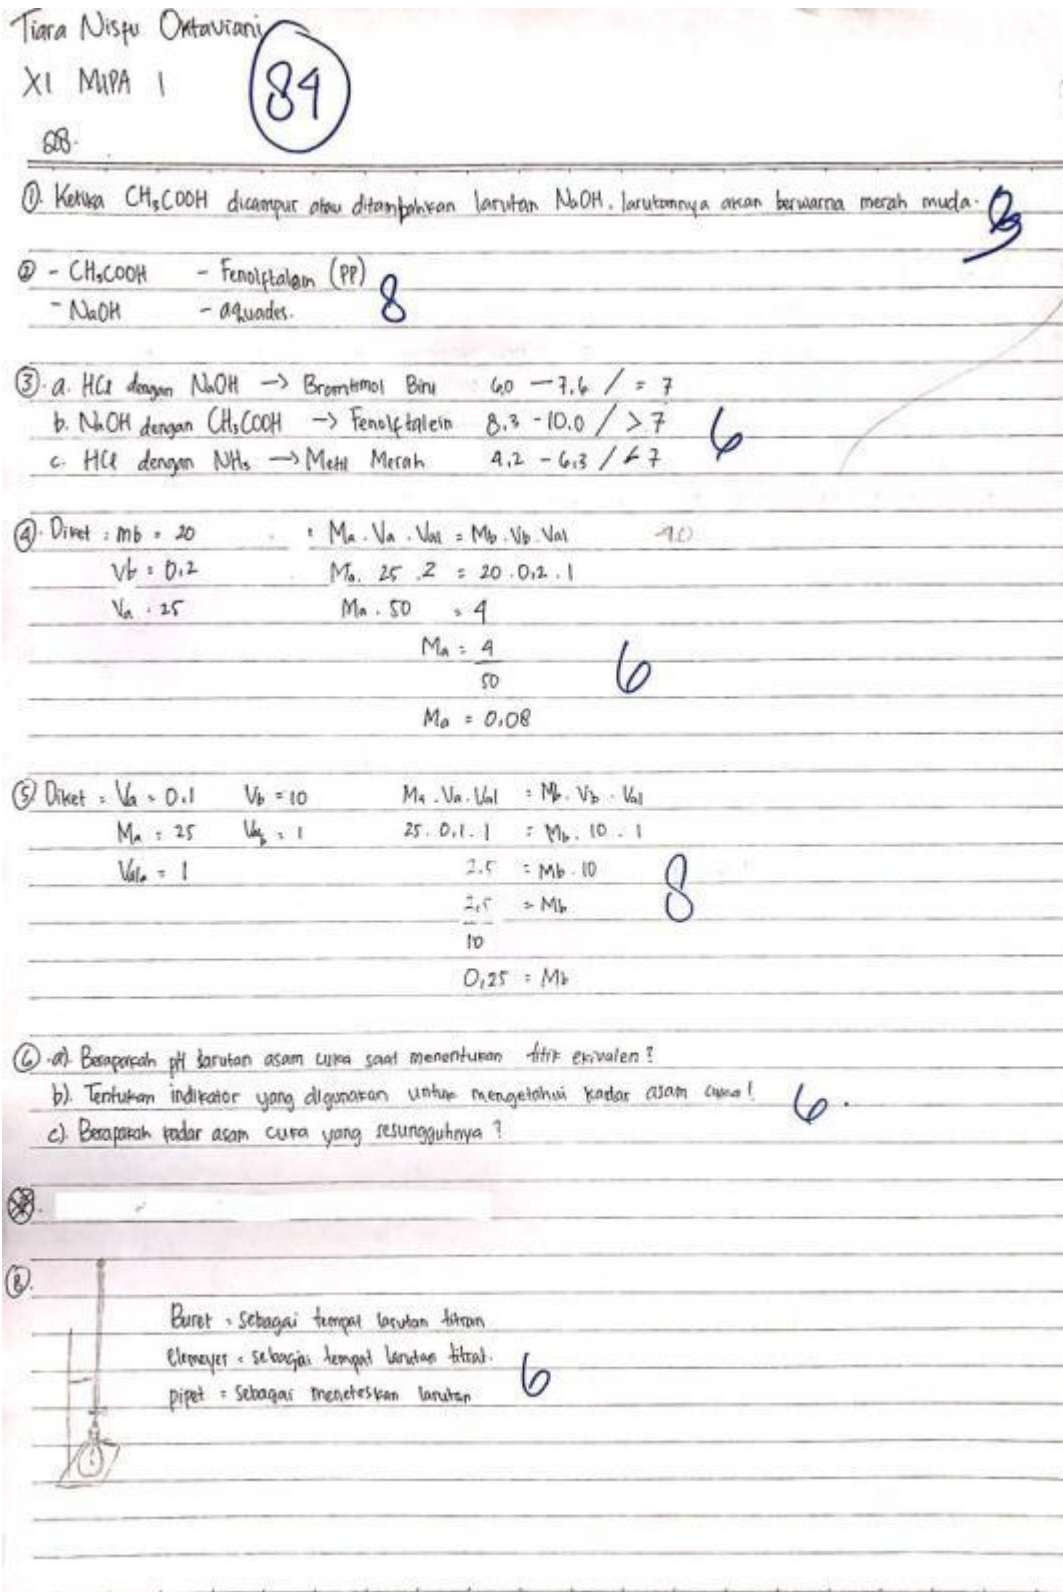 Tiara Nisfu Oktaviani
XI MIPA 1
84
28.
①. Ketika CH₃COOH dicampur atau ditambahkan larutan NaOH, larutannya akan berwarna merah muda.
② - CH₃COOH - Fenolftalein (PP)
- NaOH - aquades.
8
③. a. HCl dengan NaOH → Bromtimol Biru 6,0 - 7,6 / = 7
b. NaOH dengan CH₃COOH → Fenolftalein 8,3 - 10,0 / > 7
6
c. HCl dengan NH₃ → Metil Merah 4,2 - 6,3 / < 7
④. Diket : mb = 20 : Ma . Va . Val = Mb . Vb . Val
Vb = 0,2 Ma. 25 . 2 = 20 . 0,2 . 1
Va . 25 Ma . 50 = 4
Ma = 4
50
6
Ma = 0,08
⑤ Diket = Va = 0.1 Vb = 10 Ma . Va . Val = Mb . Vb . Val
Ma = 25 = 1 25 . 0,1 . 1 = Mb . 10 . 1
Vala = 1 2,5 = Mb . 10
8
2,5 = Mb
10
0,25 = Mb
⑥ .a). Berapakah pH larutan asam cuka saat menentukan titik ekivalen ?
b). Tentukan indikator yang digunakan untuk mengetahui kadar asam cuka !
6.
c). Berapakah kadar asam cuka yang sesungguhnya ?
⑧.
Buret = sebagai tempat larutan titran
Elemeyer = sebagai tempat larutan titrat.
6
pipet = sebagai meneteskan larutan